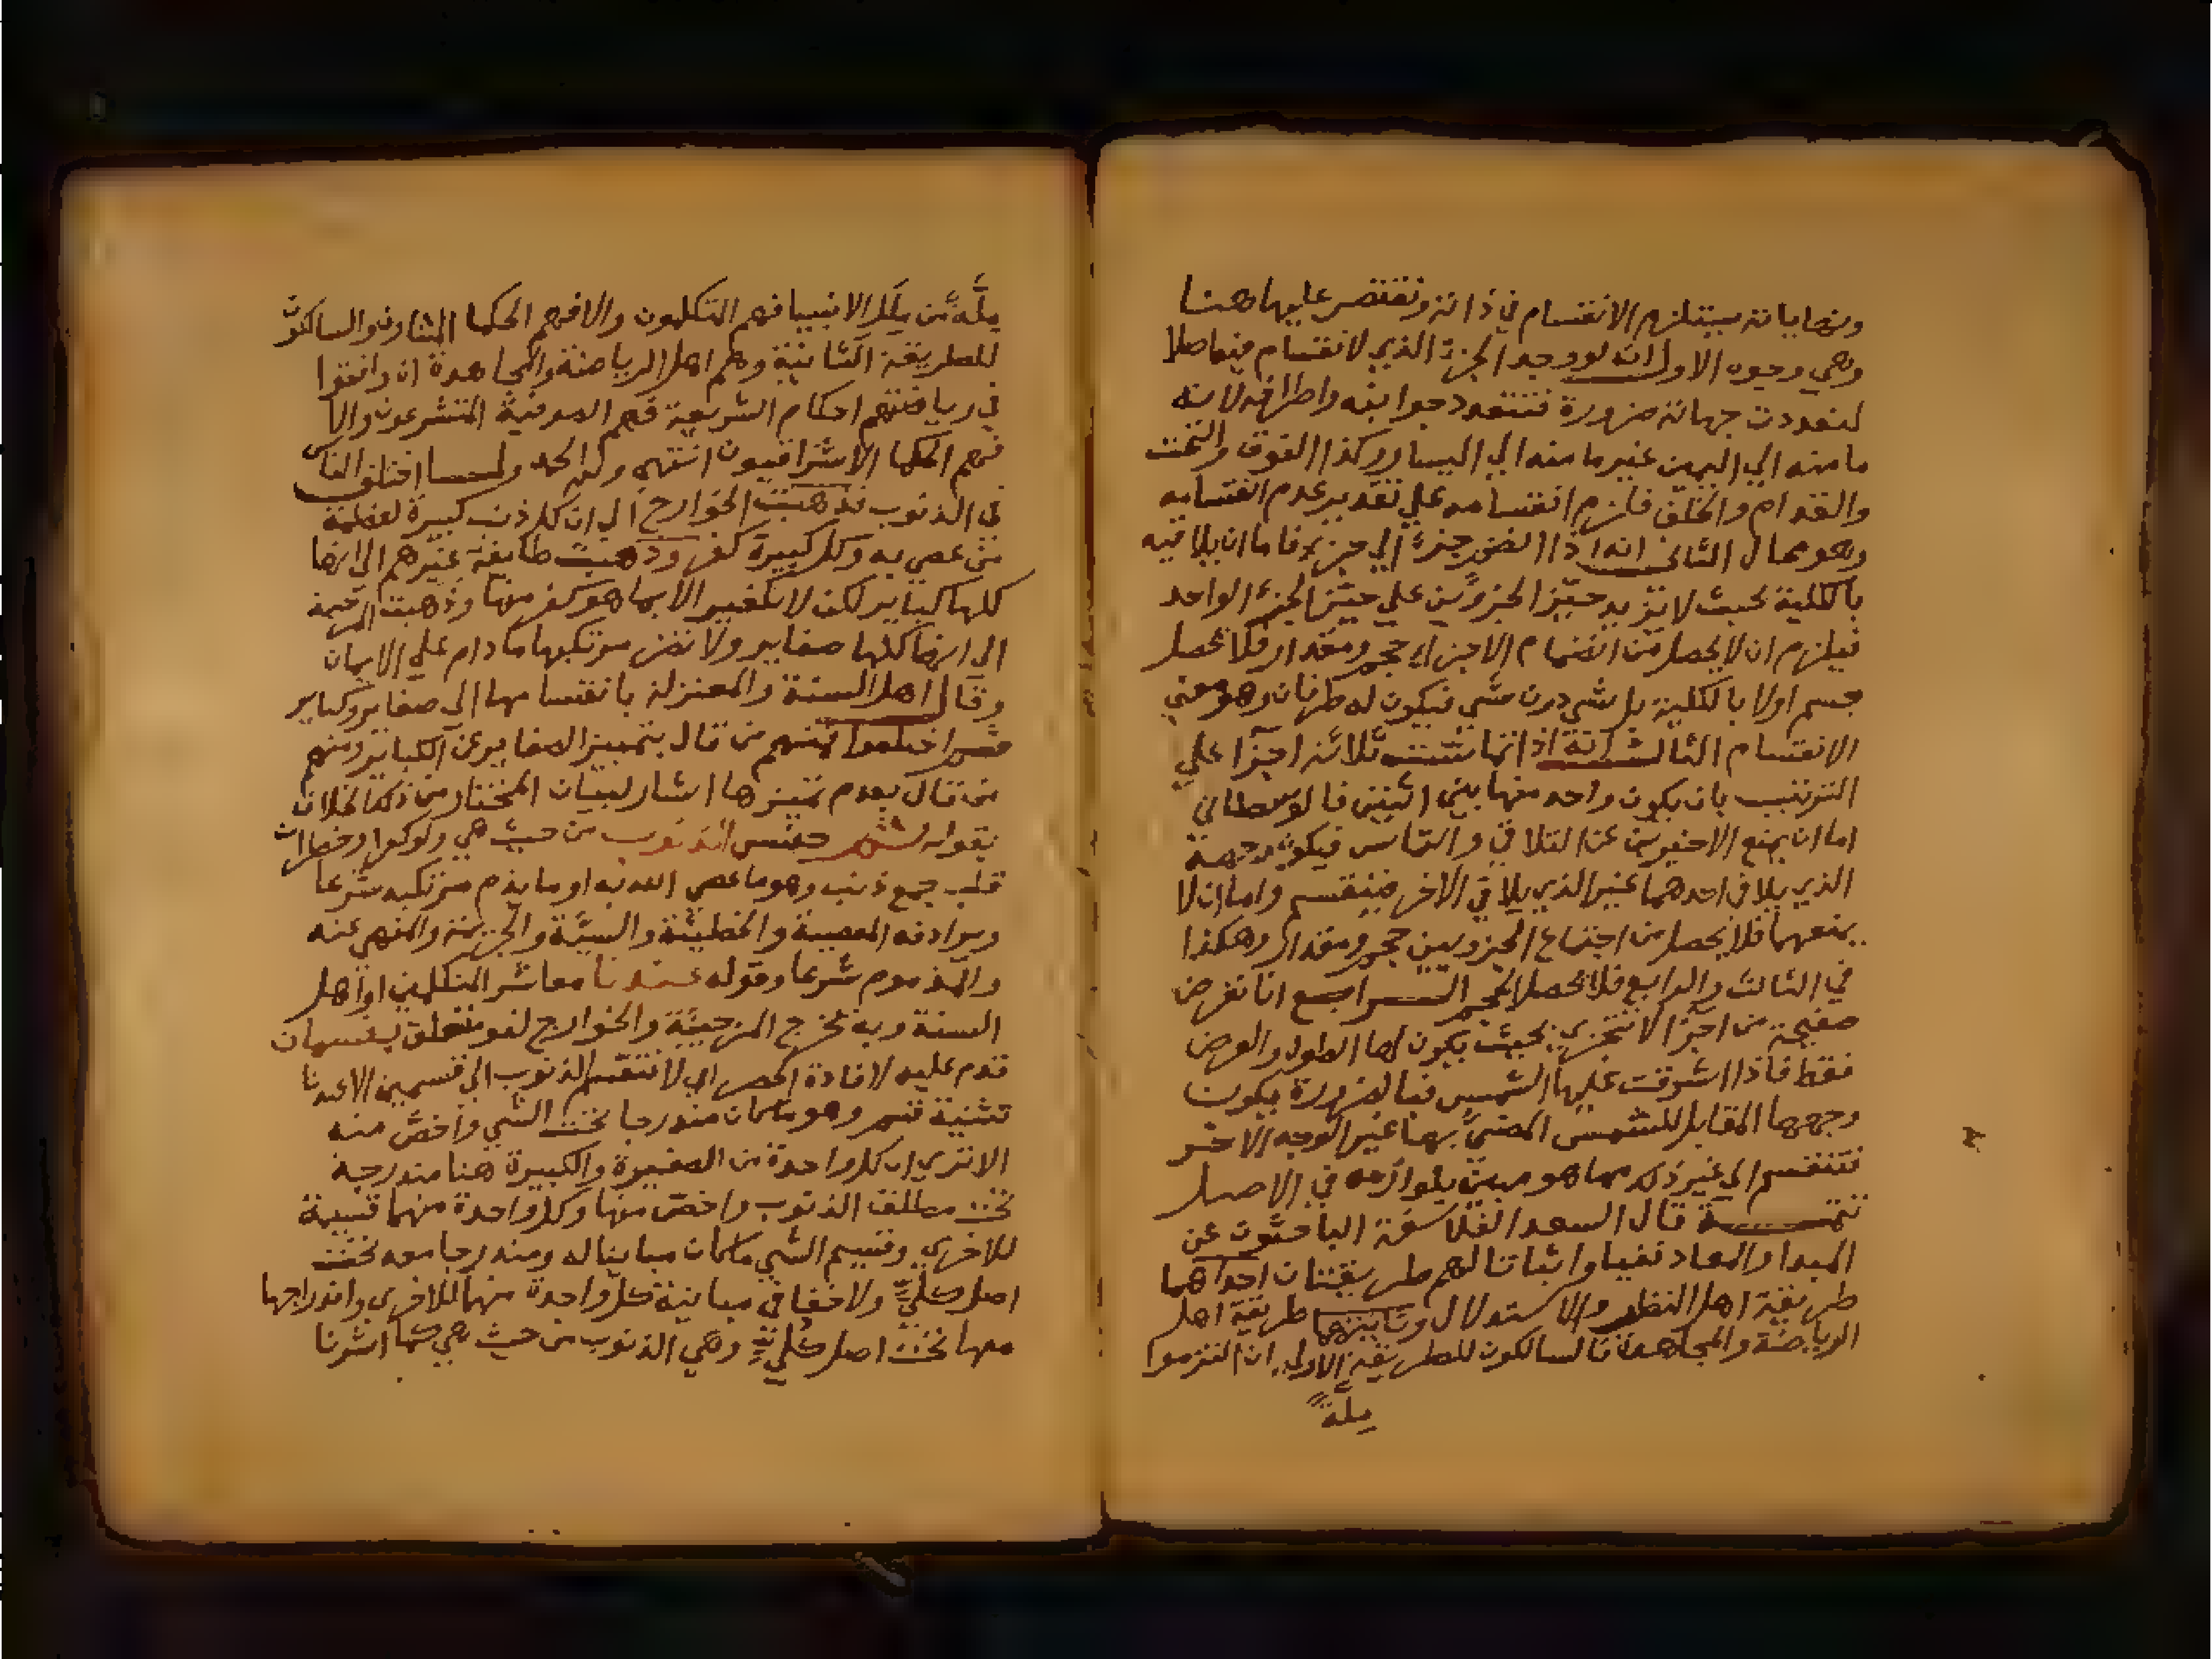 ونهاياته يستلزم الانقسام في ذاته ونقتصر عليها هنا
وهي وجوه الاول انه لو وجد الجزء الذي لا انقسام فيه اصلا
لتعددت جهاته ضرورة فتتعدد جوانبه واطرافه لانه
ما منه الي اليمين غير ما منه الي اليسار وكذا الفوق والتحت
والقدام والخلف فلزم انقسامه علي تقدير عدم انقسامه
وهو محال الثاني انه اذا انضم جزء الي جزء فاما ان يلاقيه
بالكلية بحيث لا يزيد حيّز الجزوين علي حيّز الجزء الواحد
فيلزم ان لا يحصل من انضمام الاجزاء حجم ومقدار فلا يحصل
جسم اولا بالكلية بل شي دون شي فيكون له طرفان وهو معني
الانقسام الثالث انه اذا تماست ثلاثة اجزا علي
الترتيب بان يكون واحد منها بين اثنين فالوسطاني
اما ان يمنع الاخيرين عن التلاقي والتماس فيكون وجهه
الذي يلاقي احدهما غير الذي يلاقي الاخر فينقسم واما ان لا
يمنعهما فلا يحصل من اجتماع الجزويين حجم ومقدار وهكذا
في الثالث والرابع فلا يحصل الحجم الرابع انا نفرض
صفيحة من اجزا لا تتجزي بحيث يكون لها الطول والعرض
فقط فاذا اشرقت عليها الشمس فبالضرورة يكون
وجهها المقابل للشمس المضيّ بها غير الوجه الاخر
فتنقسم الي غير ذلك مما هو مبين بلوازمه في الاصل
تتمة قال السعد الفلاسفة الباحثون عن
المبدا والمعاد نفيا واثباتا لهم طريقتان احداهما
طريقة اهل النظر والاستدلال وثانيتهما طريقة اهل
الرياضة والمجاهدة فالسالكون للطريقة الاولي ان التزموا
ملّةً
ملّة من ملل الانبيا فهم المتكلمون والا فهم الحكما المشاون والسالكون
للطريقة الثانية وهم اهل الرياضة والمجاهدة ان وافقوا
في رياضتهم احكام الشريعة فهم الصوفية المتشرعون والا
فهم الحكما الاشراقيون انتهي ولله الحمد ولما اختلف الناس
في الذنوب فذهبت الخوارج الي ان كل ذنب كبيرة لعظمة
من عصي به وكل كبيرة كفر وذهبت طايفة غيرهم الي انها
كلها كباير لكن لا تكفير الا بما هو كفر منها وذهبت المرجية
الي انها كلها صغاير ولا تضر مرتكبها ما دام علي الايمان
وقال اهل السنة والمعتزلة بانقسامها الي صغاير وكباير
ثم اختلفوا فمنهم من قال بتمييز الصغاير عن الكباير ومنهم
من قال بعدم تمييزها اشار لبيان المختار من ذلك الخلاف
بقوله ثم جنس الذنوب من حيث هي ولو كفرا وخطرات
قلب جمع ذنب وهو ما عصي الله به او ما يذم مرتكبه شرعا
ويرادفه المعصية والخطيئة والسيّة والجريمة والمنهي عنه
والمذموم شرعا وقوله عندنا معاشر المتكلمين او اهل
السنة وبه تخرج المرجيئة والخوارج لغو متعلق بقسمان
قدم عليه لافادة الحصر اي لا تنقسم الذنوب الي قسمين الا عندنا
تثنية قسم وهو ما كان مندرجا تحت الشي واخصّ منه
الا تري ان كل واحدة من الصغيرة والكبيرة هنا مندرجة
تحت مطلق الذنوب واخص منها وكل واحدة منهما قسيمة
للاخري وقسيم الشي ما كان مباينا له ومندرجا معه تحت
اصل كليٍّ ولا خفا في مباينة كل واحدة منهما للاخري واندراجها
معها تحت اصل كليٍّ وهي الذنوب من حيث هي كما اشرنا